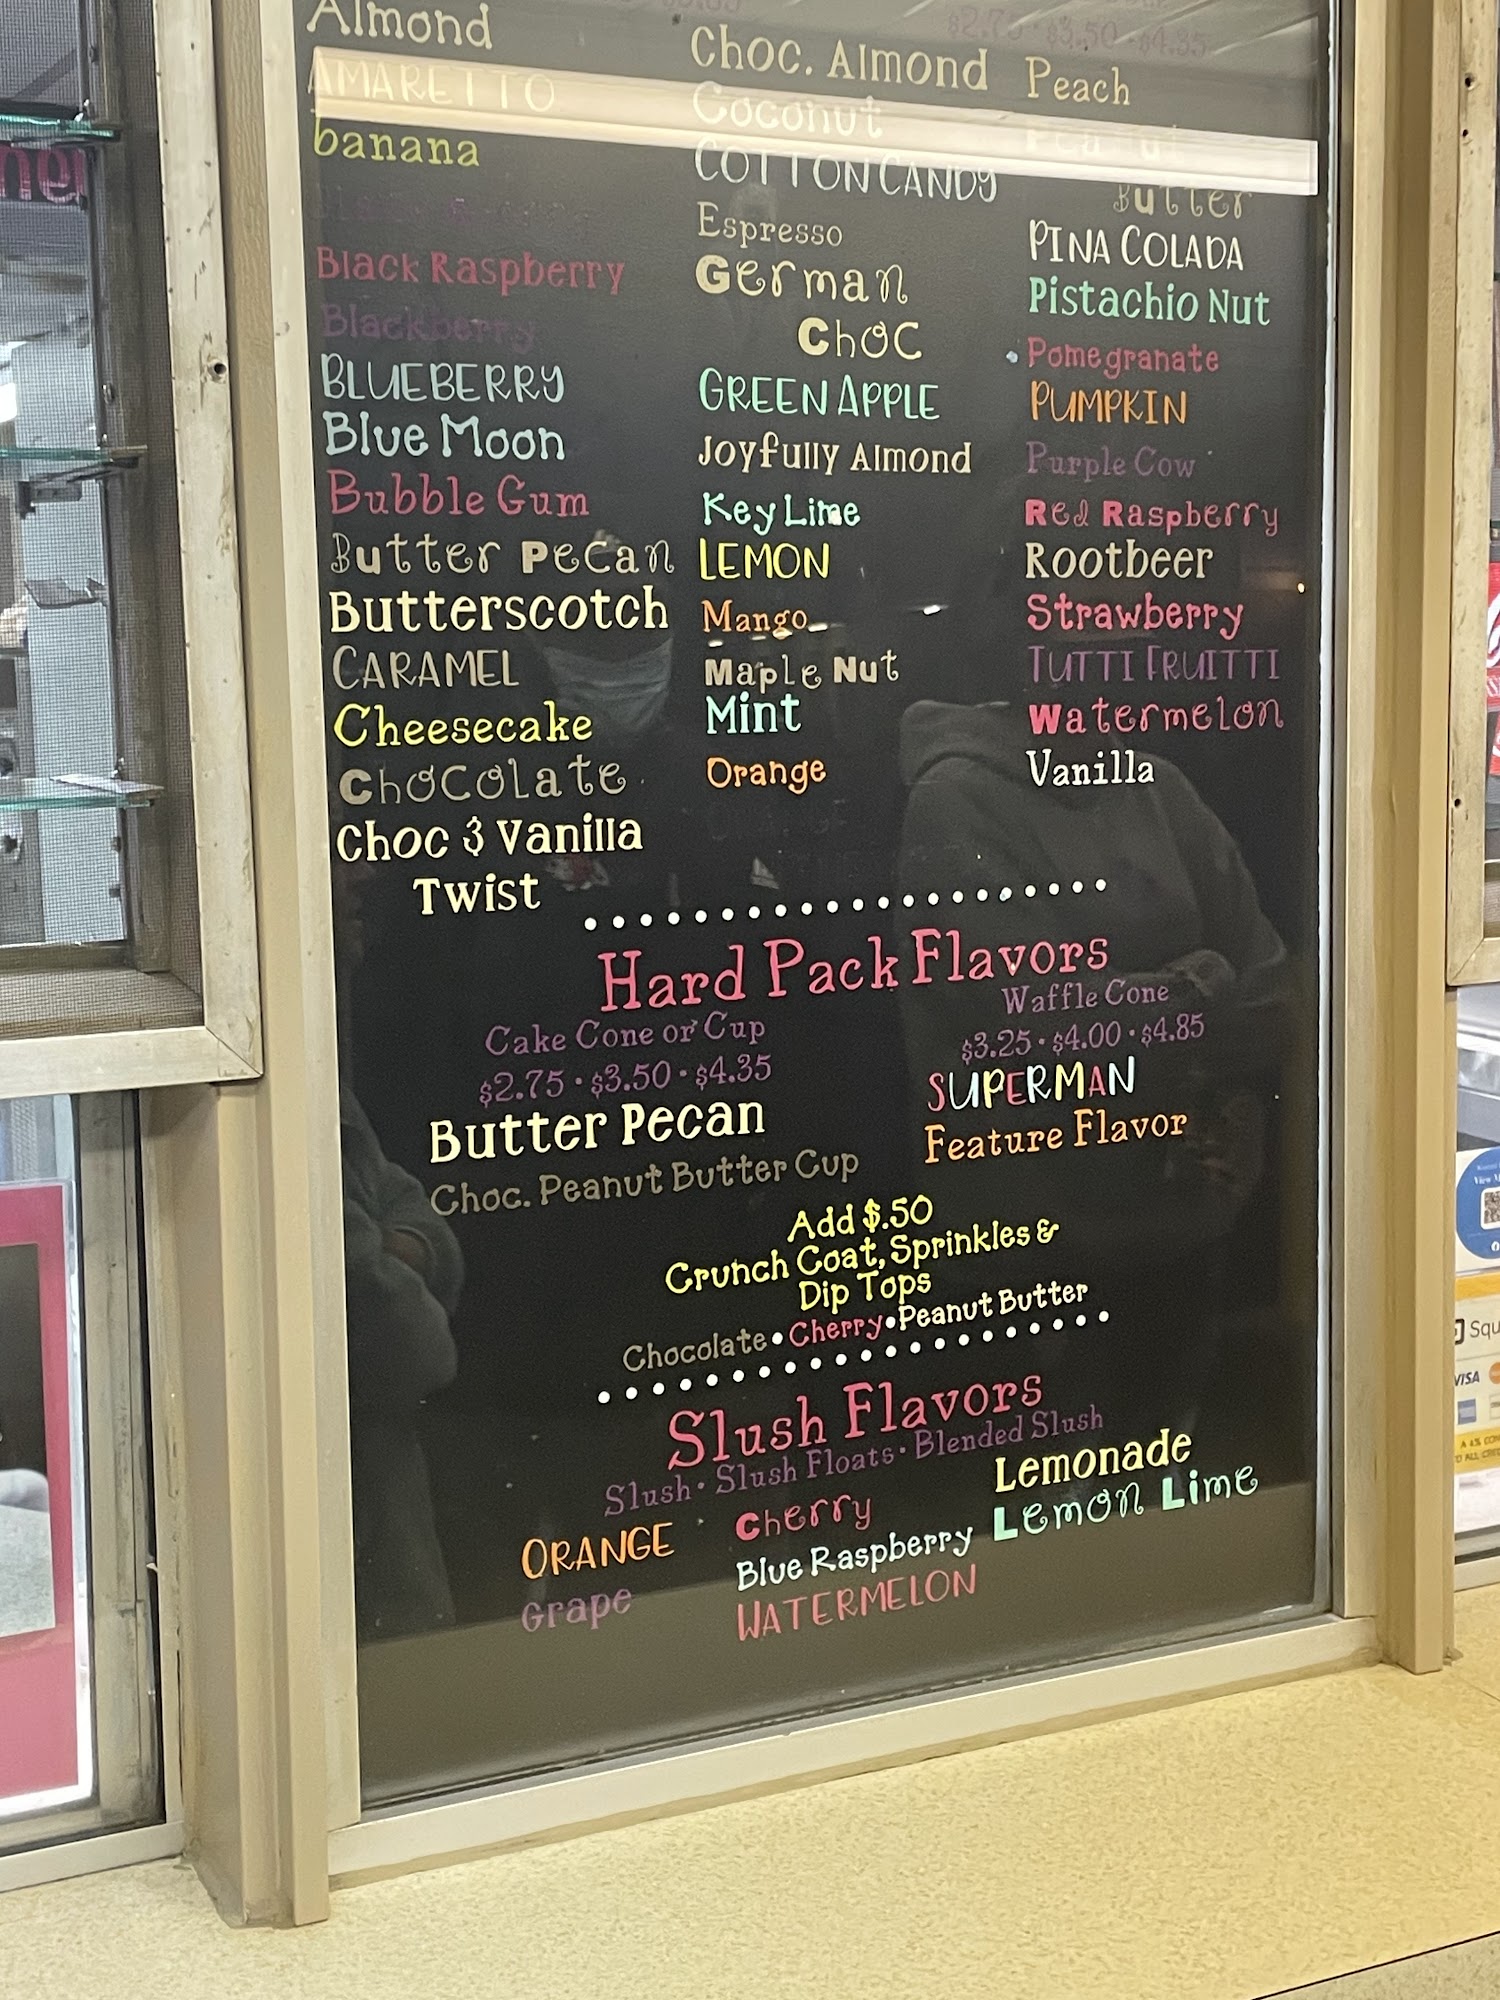 $2.75 · $3.50 · $4.35
Almond
AMARETTO
banana
Black Raspberry
Blackberry
BLUEBERRY
Blue Moon
Bubble Gum
Butter Pecan
Butterscotch
CARAMEL
Cheesecake
Chocolate
Choc & Vanilla
Twist
Choc. Almond
Coconut
COTTON CANDY
Espresso
German
Choc
GREEN APPLE
Joyfully Almond
Key Lime
LEMON
Mango
Maple Nut
Mint
Orange
Peach
Peanut
Butter
PINA COLADA
Pistachio Nut
Pomegranate
PUMPKIN
Purple Cow
Red Raspberry
Rootbeer
Strawberry
TUTTI FRUITTI
Watermelon
Vanilla
Hard Pack Flavors
Cake Cone or Cup
$2.75 · $3.50 · $4.35
Waffle Cone
$3.25 · $4.00 · $4.85
Butter Pecan
Choc. Peanut Butter Cup
SUPERMAN
Feature Flavor
Add $.50
Crunch Coat, Sprinkles &
Dip Tops
Chocolate • Cherry • Peanut Butter
Slush Flavors
Slush · Slush Floats · Blended Slush
ORANGE
Grape
Cherry
Blue Raspberry
WATERMELON
Lemonade
Lemon Lime
Squ
VISA